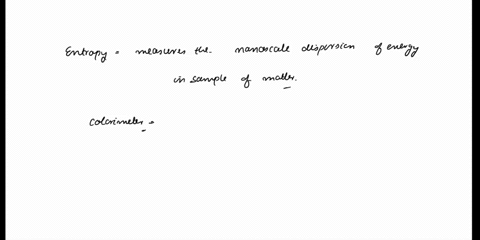 Entropy = measures the nanoscale dispersion of energy
in sample of matter.
Calorimeter =